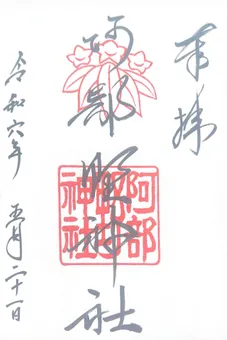 奉拝
阿部野神社
令和六年 五月二十一日
阿部野神社